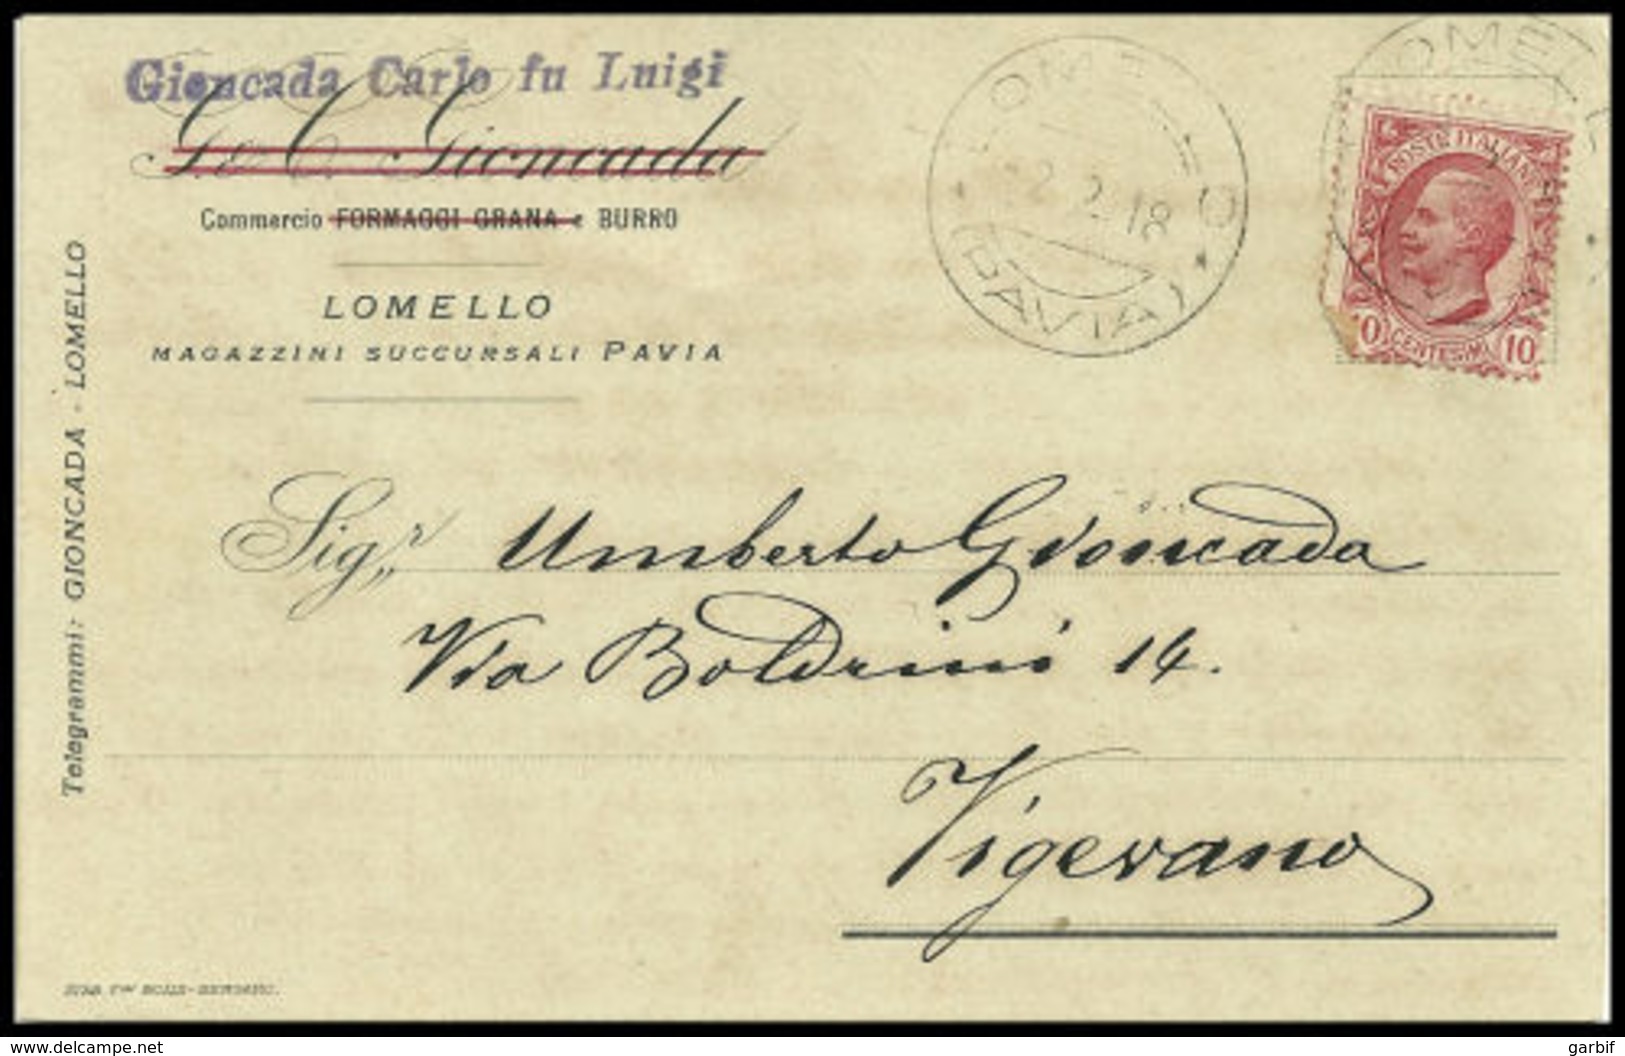 Gioncada Carlo fu Luigi
G. e C. Gioncada
Commercio FORMAGGI GRANA e BURRO
LOMELLO
MAGAZZINI SUCCURSALI PAVIA
Telegrammi: GIONCADA - LOMELLO
LOMELLO
2.2.18
(PAVIA)
LOMELL
POSTE ITALIANE
10 CENTESIMI 10
Sigr. Umberto Gioncada
Via Boldrini 14.
Vigevano
www.delcampe.net
garbif